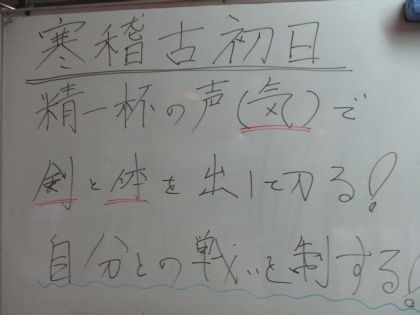 寒稽古初日
精一杯の声(気)で
剣と体を出し切る!
自分との戦いを制する!